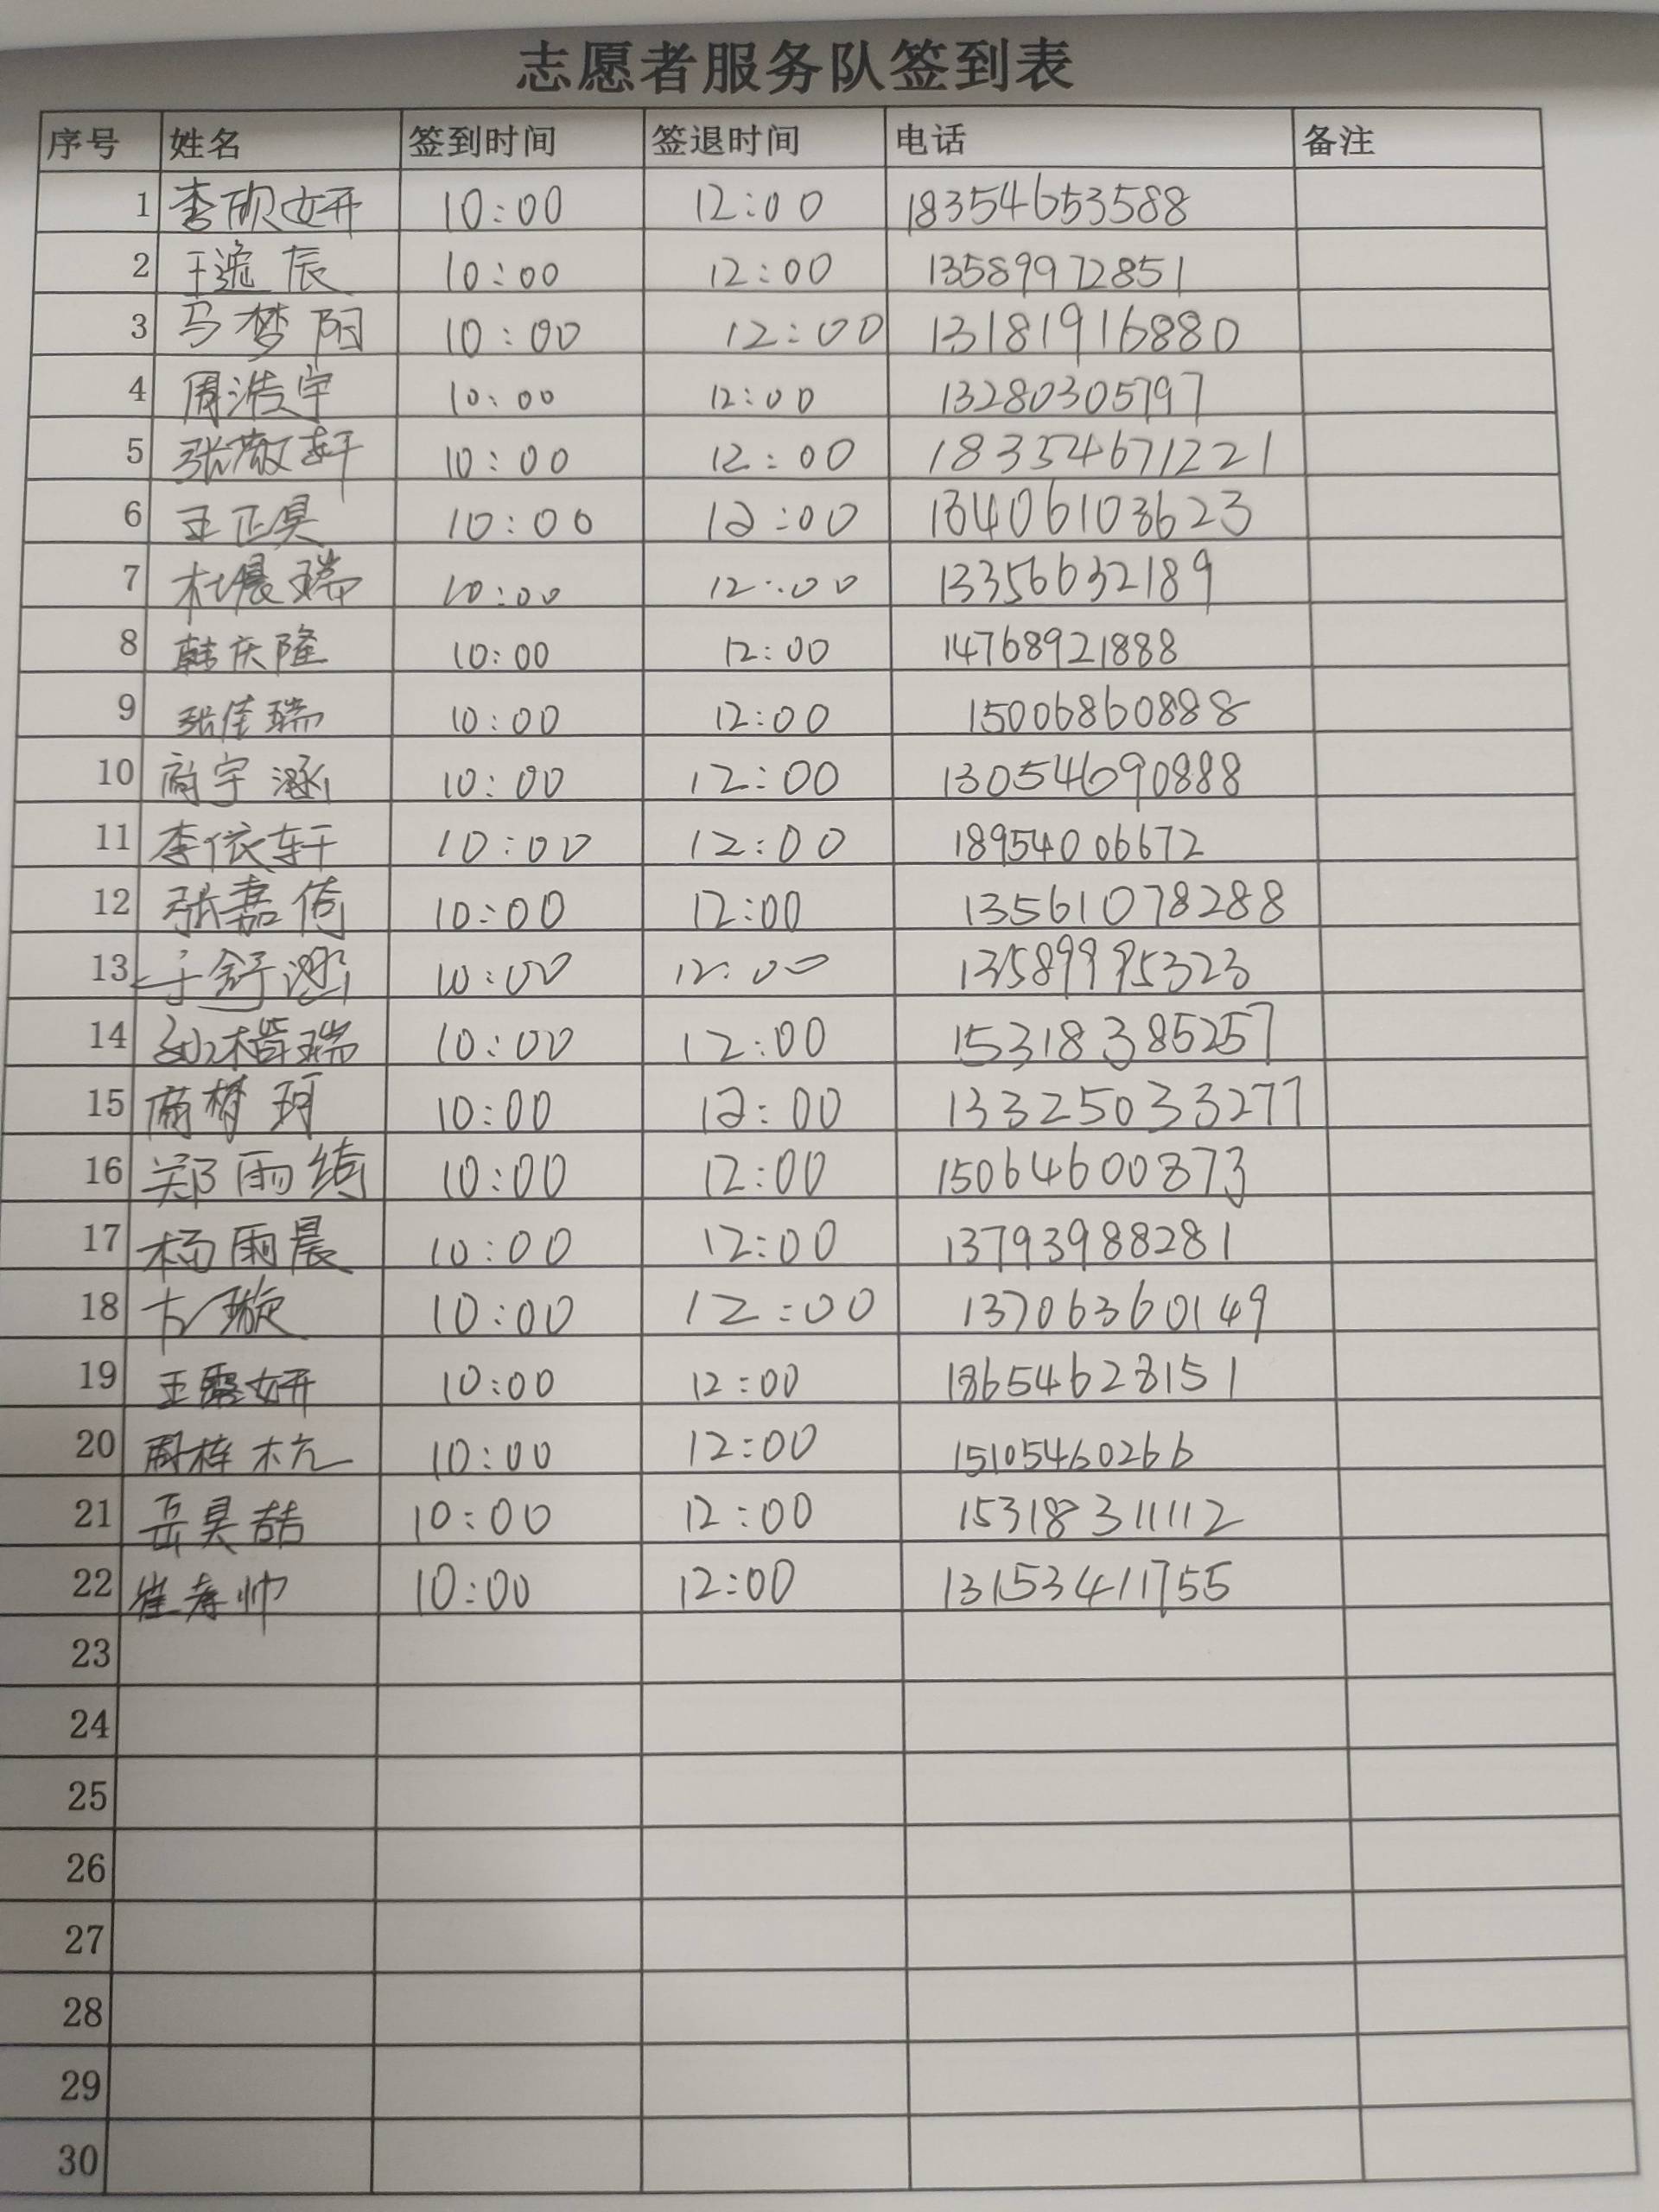 志愿者服务队签到表
序号 姓名 签到时间 签退时间 电话 备注
1 李砚妍 10:00 12:00 18354653588
2 王逸辰 10:00 12:00 13589972851
3 马梦阳 10:00 12:00 13181916880
4 周浩宇 10:00 12:00 13280305797
5 张敬轩 10:00 12:00 18354671221
6 王正昊 10:00 12:00 13406103623
7 杜晨瑞 10:00 12:00 13356632189
8 韩庆隆 10:00 12:00 14768921888
9 张佳瑞 10:00 12:00 15006860888
10 商宇涵 10:00 12:00 13054690888
11 李依轩 10:00 12:00 18954006672
12 张嘉倚 10:00 12:00 13561078288
13 于舒涵 10:00 12:00 13589995323
14 楷瑞 10:00 12:00 15318385257
15 商梦珂 10:00 12:00 13325033277
16 郑雨绮 10:00 12:00 15064600873
17 杨雨晨 10:00 12:00 13793988281
18 璇 10:00 12:00 13706360149
19 王露妍 10:00 12:00 18654628151
20 周梓杭 10:00 12:00 15105460266
21 岳昊喆 10:00 12:00 15318311112
22 崔孝帅 10:00 12:00 13153411755
23
24
25
26
27
28
29
30